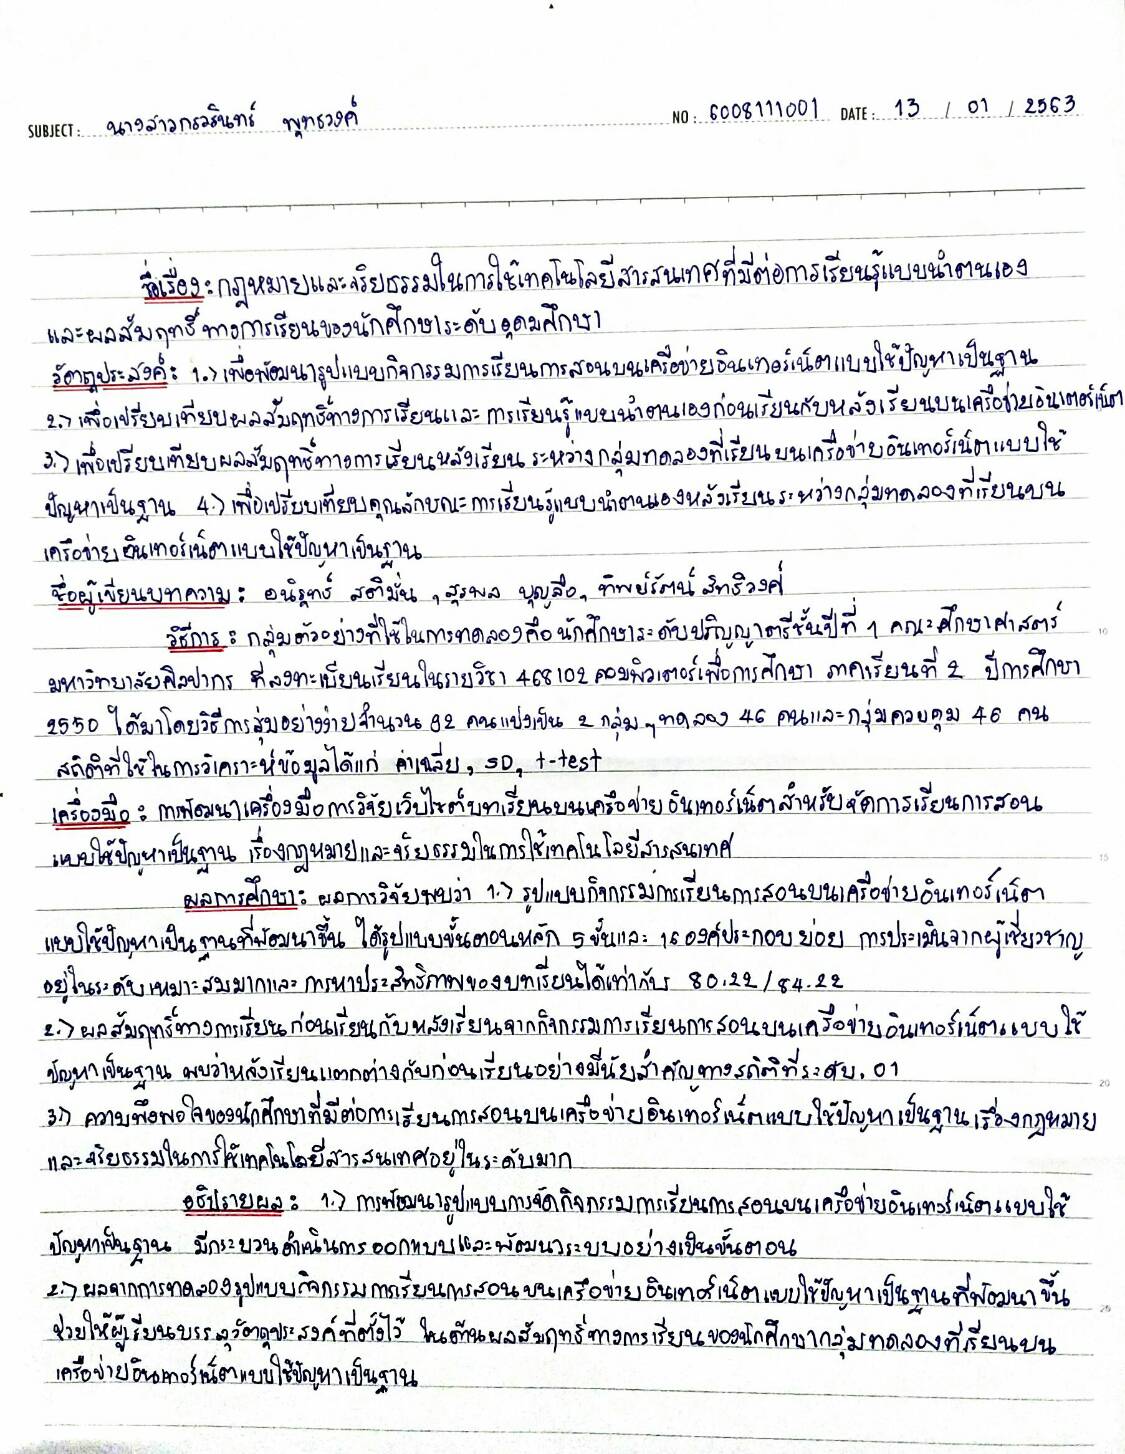 SUBJECT: นางสาวกรวรินทร์ พุทธวงค์ NO: 6008111001 DATE: 13 / 01 / 2563
ชื่อเรื่อง: กฎหมายและจริยธรรมในการใช้เทคโนโลยีสารสนเทศที่มีต่อการเรียนรู้แบบนำตนเอง
และผลสัมฤทธิ์ทางการเรียนของนักศึกษาระดับอุดมศึกษา
วัตถุประสงค์: 1.) เพื่อพัฒนารูปแบบกิจกรรมการเรียนการสอนบนเครือข่ายอินเทอร์เน็ตแบบใช้ปัญหาเป็นฐาน
2.) เพื่อเปรียบเทียบผลสัมฤทธิ์ทางการเรียนและการเรียนรู้แบบนำตนเองก่อนเรียนกับหลังเรียนบนเครือข่ายอินเตอร์เน็ต
3.) เพื่อเปรียบเทียบผลสัมฤทธิ์ทางการเรียนหลังเรียน ระหว่างกลุ่มทดลองที่เรียนบนเครือข่ายอินเทอร์เน็ตแบบใช้
ปัญหาเป็นฐาน 4.) เพื่อเปรียบเทียบคุณลักษณะการเรียนรู้แบบนำตนเองหลังเรียนระหว่างกลุ่มทดลองที่เรียนบน
เครือข่ายอินเทอร์เน็ตแบบใช้ปัญหาเป็นฐาน
ชื่อผู้เขียนบทความ: อนิรุทธ์ สติมั่น, สุรพล บุญลือ, ทิพย์รัตน์ สิทธิวงศ์
วิธีการ: กลุ่มตัวอย่างที่ใช้ในการทดลองคือนักศึกษาระดับปริญญาตรีชั้นปีที่ 1 คณะศึกษาศาสตร์ 10
มหาวิทยาลัยศิลปากร ที่ลงทะเบียนเรียนในรายวิชา 468102 คอมพิวเตอร์เพื่อการศึกษา ภาคเรียนที่ 2 ปีการศึกษา
2550 ได้มาโดยวิธีการสุ่มอย่างง่ายจำนวน 92 คนแบ่งเป็น 2 กลุ่มๆทดลอง 46 คนและกลุ่มควบคุม 46 คน
สถิติที่ใช้ในการวิเคราะห์ข้อมูลได้แก่ ค่าเฉลี่ย, SD, t-test
เครื่องมือ: การพัฒนาเครื่องมือการวิจัยเว็บไซต์บทเรียนบนเครือข่ายอินเทอร์เน็ตสำหรับจัดการเรียนการสอน
แบบใช้ปัญหาเป็นฐาน เรื่องกฎหมายและจริยธรรมในการใช้เทคโนโลยีสารสนเทศ 15
ผลการศึกษา: ผลการวิจัยพบว่า 1.) รูปแบบกิจกรรมการเรียนการสอนบนเครือข่ายอินเทอร์เน็ต
แบบใช้ปัญหาเป็นฐานที่พัฒนาขึ้น ได้รูปแบบขั้นตอนหลัก 5 ขั้นและ 15 องค์ประกอบย่อย การประเมินจากผู้เชี่ยวชาญ
อยู่ในระดับเหมาะสมมากและการหาประสิทธิภาพของบทเรียนได้เท่ากับ 80.22/84.22
2.) ผลสัมฤทธิ์ทางการเรียนก่อนเรียนกับหลังเรียนจากกิจกรรมการเรียนการสอนบนเครือข่ายอินเทอร์เน็ตแบบใช้
ปัญหาเป็นฐาน พบว่าหลังเรียนแตกต่างกับก่อนเรียนอย่างมีนัยสำคัญทางสถิติที่ระดับ .01 20
3.) ความพึงพอใจของนักศึกษาที่มีต่อการเรียนการสอนบนเครือข่ายอินเทอร์เน็ตแบบใช้ปัญหาเป็นฐานเรื่องกฎหมาย
และจริยธรรมในการใช้เทคโนโลยีสารสนเทศอยู่ในระดับมาก
อธิปรายผล: 1.) การพัฒนารูปแบบการจัดกิจกรรมการเรียนการสอนบนเครือข่ายอินเทอร์เน็ตแบบใช้
ปัญหาเป็นฐาน มีกระบวนดำเนินการออกแบบและพัฒนาระบบอย่างเป็นขั้นตอน
2.) ผลจากการทดลองรูปแบบกิจกรรมการเรียนการสอนบนเครือข่ายอินเทอร์เน็ตแบบใช้ปัญหาเป็นฐานที่พัฒนาขึ้น 25
ช่วยให้ผู้เรียนบรรลุวัตถุประสงค์ที่ตั้งไว้ ในด้านผลสัมฤทธิ์ทางการเรียนของนักศึกษากลุ่มทดลองที่เรียนบน
เครือข่ายอินเทอร์เน็ตแบบใช้ปัญหาเป็นฐาน